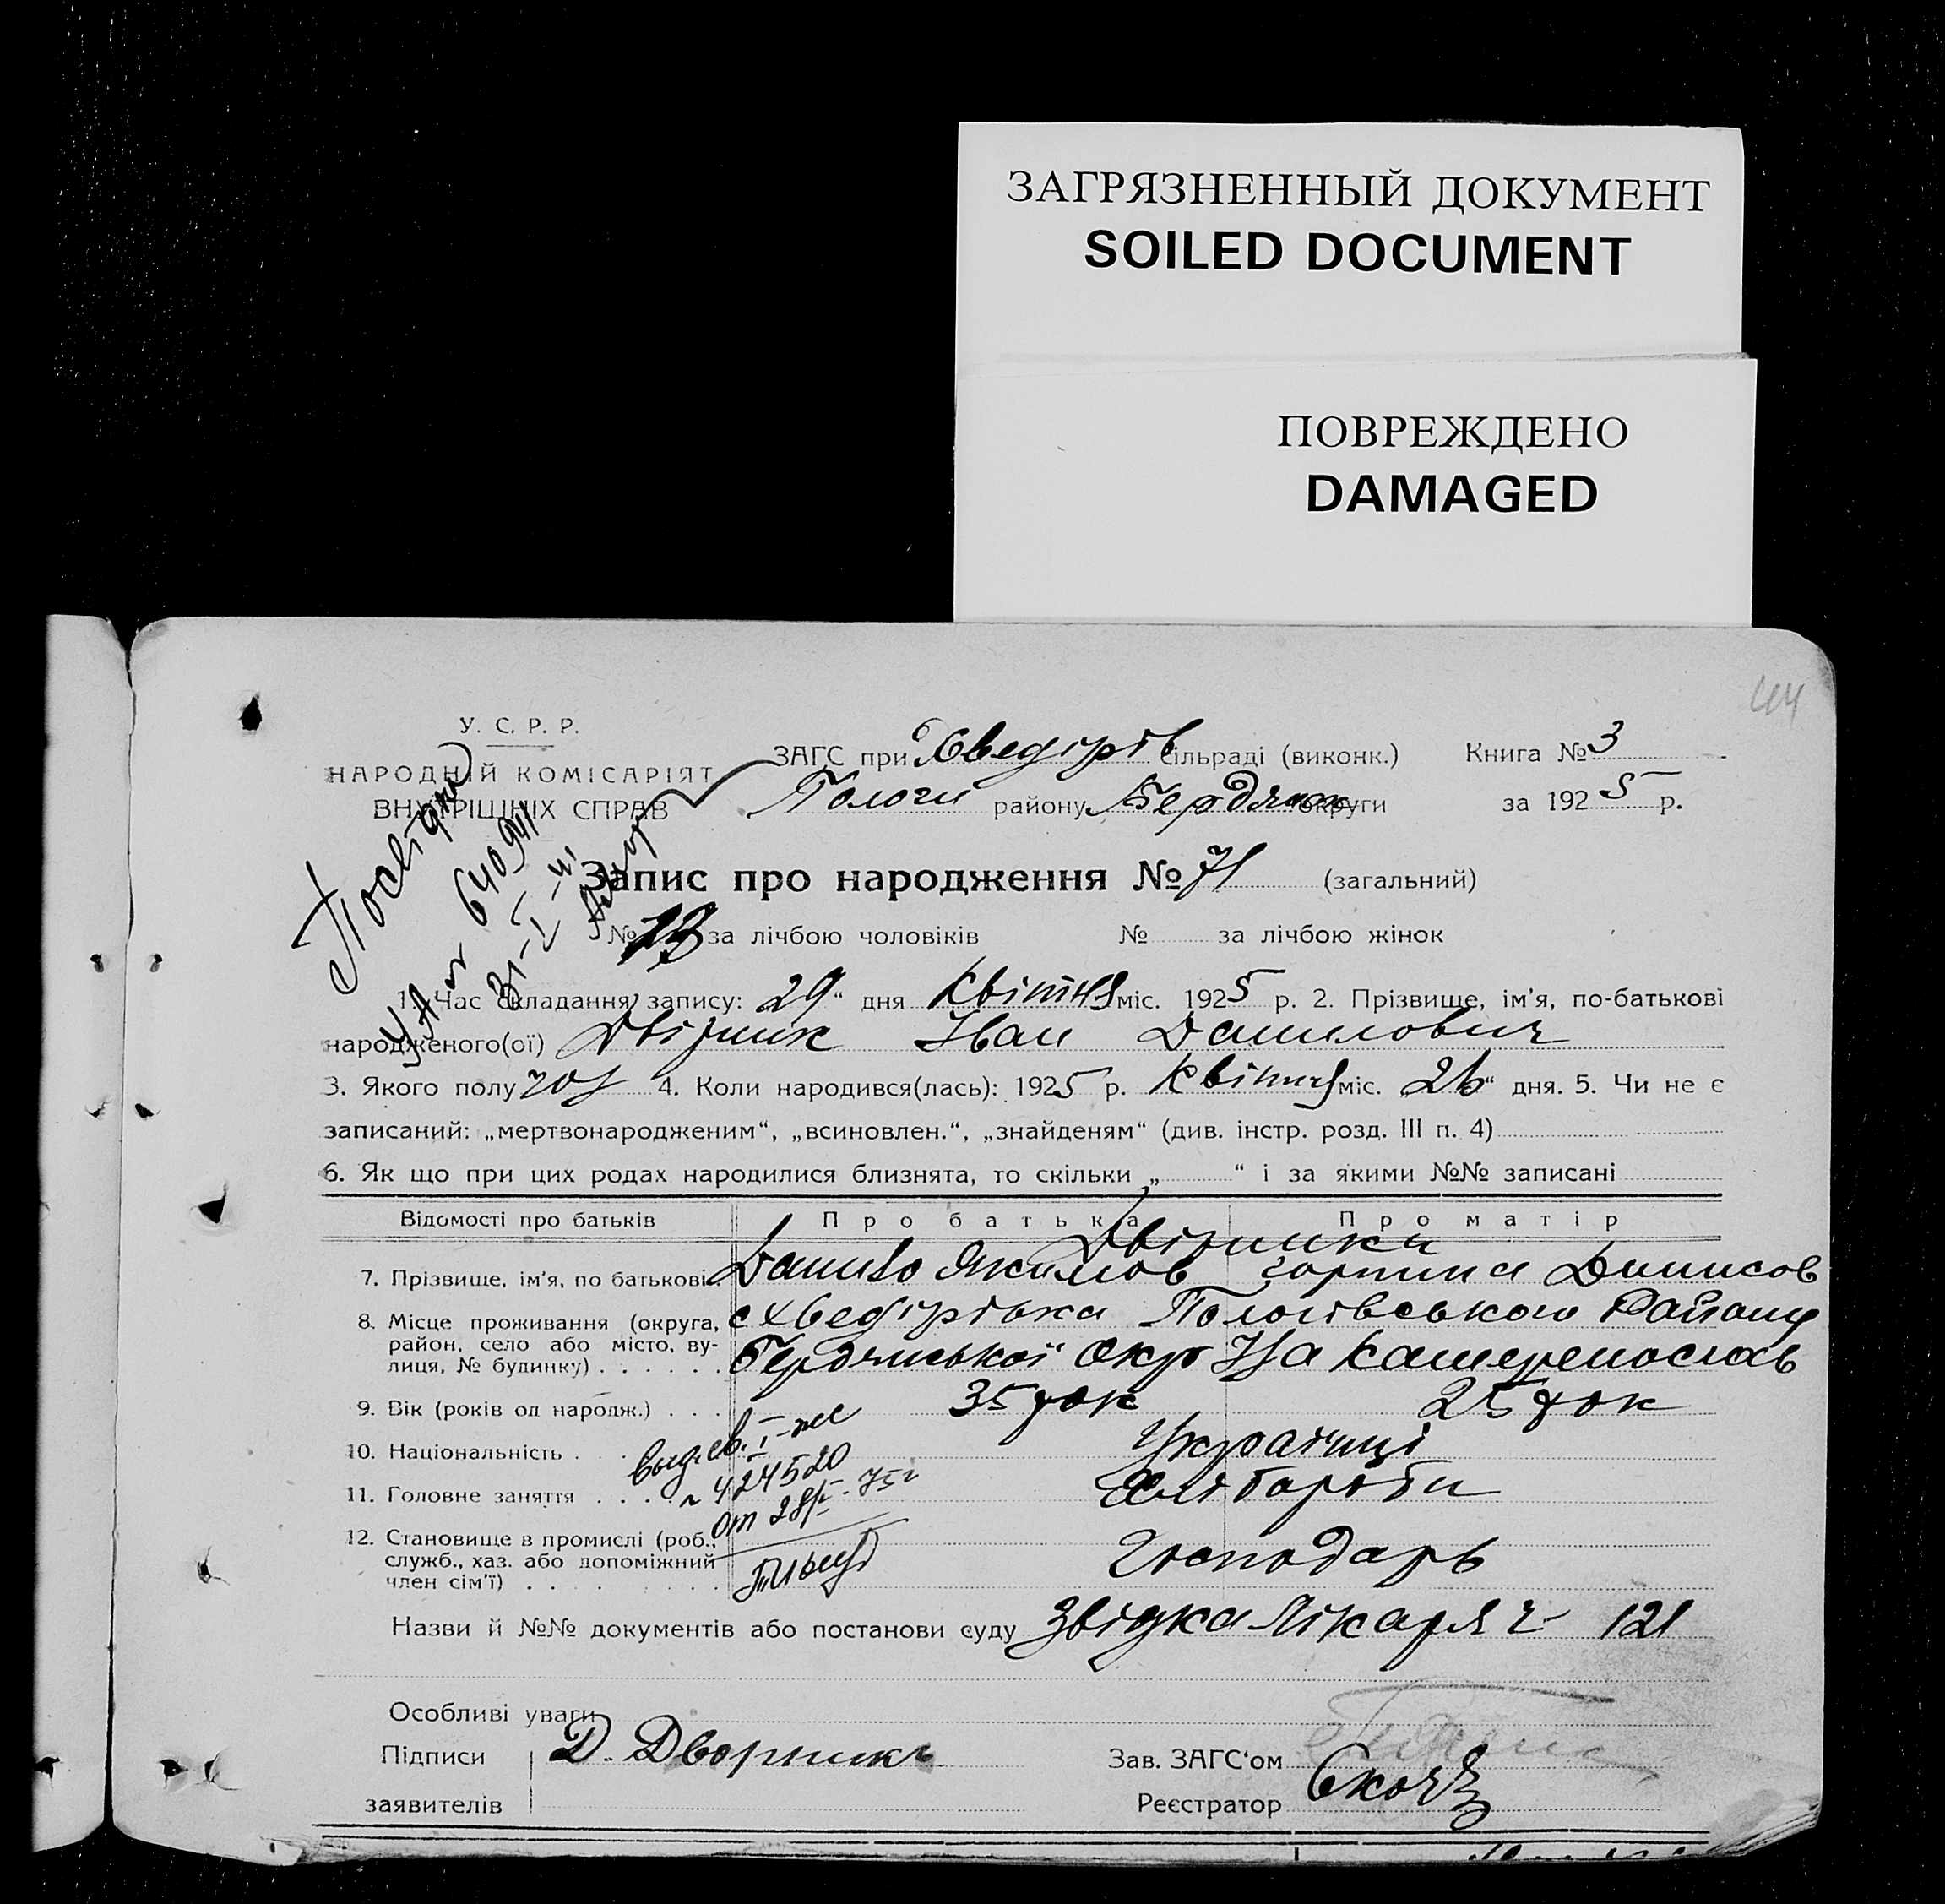 ЗАГРЯЗНЕННЫЙ ДОКУМЕНТ
SOILED DOCUMENT
ПОВРЕЖДЕНО
DAMAGED
У. С. Р. Р.
НАРОДНІЙ КОМІСАРІЯТ
ВНУТРІШНІХ СПРАВ
ЗАГС при сільраді (виконк.) Книга № 3
Пологи району Бердянск округи за 1925 р.
640941
31-I-41
Запис про народження № 71 (загальний)
№ за лічбою чоловіків № за лічбою жінок
1. Час складання запису: 29 " дня Квітня міс. 1925 р. 2. Прізвище, ім'я, по-батькові
народженого(ої) Двірник Иван Данилович
3. Якого полу чол 4. Коли народився(лась): 1925 р. Квітня міс. 26 " дня. 5. Чи не є
записаний: „мертвонародженим", „всиновлен.", „знайденям" (див. інстр. розд. III п. 4)
6. Як що при цих родах народилися близнята, то скільки „ " і за якими №№ записані
Відомості про батьків Про батька Про матір
Двірники
7. Прізвище, ім'я, по батькові. Данило Якимов Горпина Денисов
8. Місце проживання (округа, Пологівського Району
район, село або місто, ву- Бердянської Окр На Катеренослав
лиця, № будинку)
9. Вік (років од народж.) 35 рок 25 рок
10. Національність Українці
11. Головне заняття Хлібороби
№ 424520
12. Становище в промислі (роб.,
служб., хаз. або допоміжний Господарь
член сім'ї)
Назви й №№ документів або постанови суду Звідка Лікаря ч 121
Особливі уваги
Підписи Д. Дворник Зав. ЗАГС'ом
заявителів Реєстратор